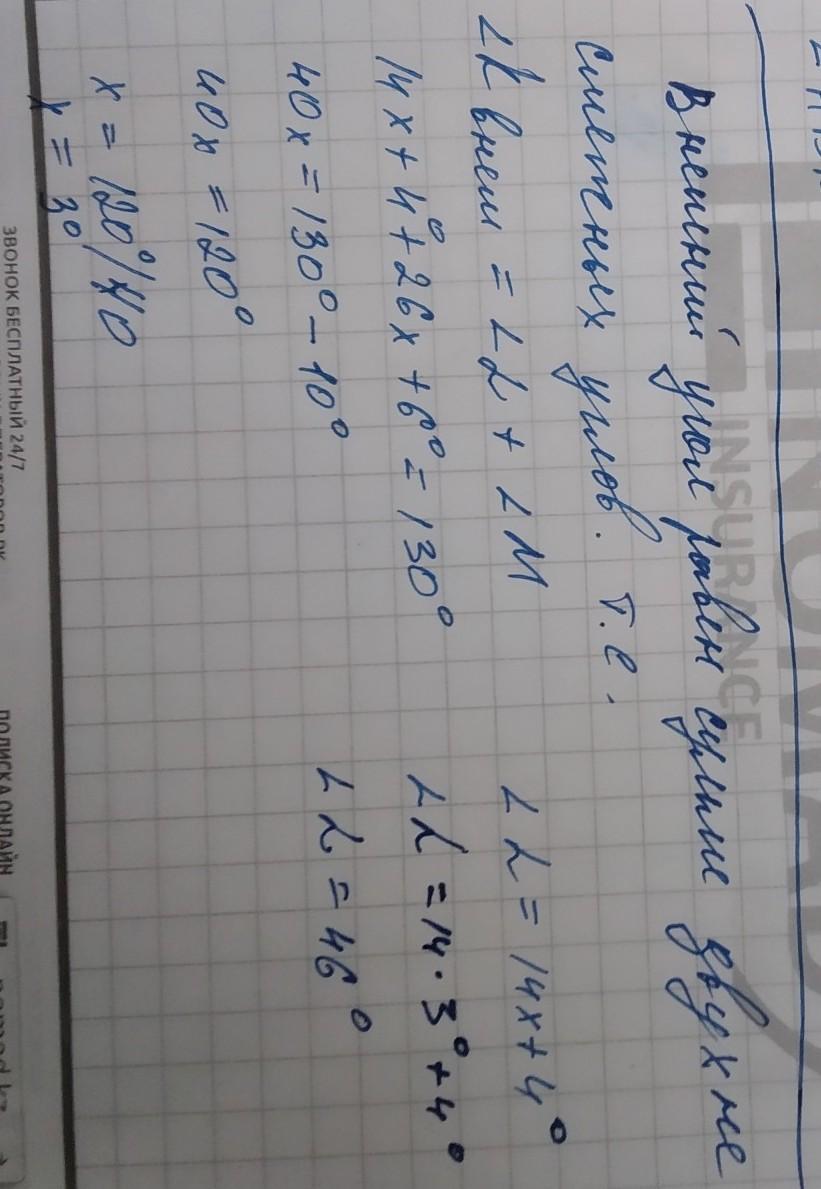 Внешний угол равен сумме двух не
смежных углов. т.е.
∠K внеш = ∠L + ∠M
14x + 4° + 26x + 6° = 130°
40x = 130° - 10°
40x = 120°
x = 120°/40
x = 3°
∠L = 14x + 4°
∠L = 14 · 3° + 4°
∠L = 46°
NOMAD
INSURANCE
ЗВОНОК БЕСПЛАТНЫЙ 24/7
ПОЛИСКА ОНЛАЙН